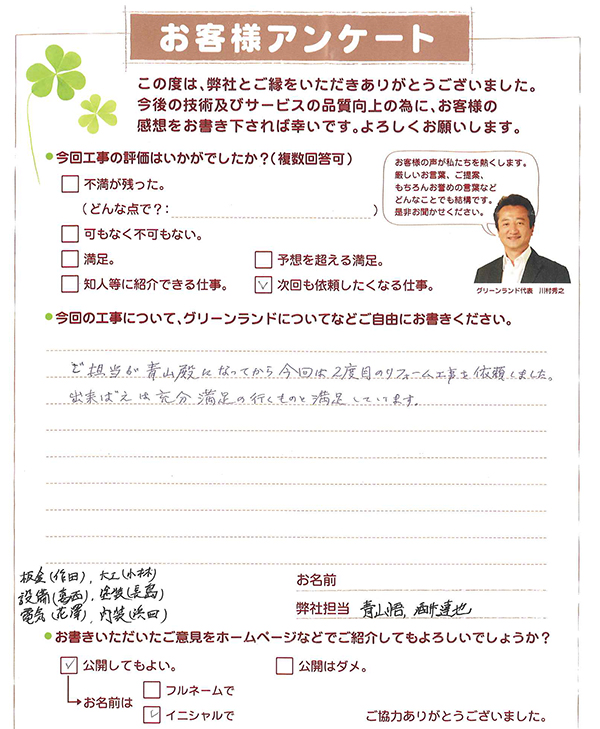 お客様アンケート
この度は、弊社とご縁をいただきありがとうございました。
今後の技術及びサービスの品質向上の為に、お客様の
感想をお書き下されば幸いです。よろしくお願いします。
今回工事の評価はいかがでしたか？（複数回答可）
不満が残った。
（どんな点で？：　）
可もなく不可もない。
満足。
予想を超える満足。
知人等に紹介できる仕事。
次回も依頼したくなる仕事。
お客様の声が私たちを熱くします。
厳しいお言葉、ご提案、
もちろんお誉めの言葉など
どんなことでも結構です。
是非お聞かせください。
グリーンランド代表　川村秀之
今回の工事について、グリーンランドについてなどご自由にお書きください。
ご担当が青山殿になってから今回は2度目のリフォーム工事を依頼しました。
出来ばえは充分満足の行くものと満足しています。
板金(作田)、大工(小林)
設備(葛西)、塗装(長島)
電気(花澤)、内装(浜田)
お名前
弊社担当　青山悟、酒井達也
お書きいただいたご意見をホームページなどでご紹介してもよろしいでしょうか？
公開してもよい。
公開はダメ。
お名前は
フルネームで
イニシャルで
ご協力ありがとうございました。